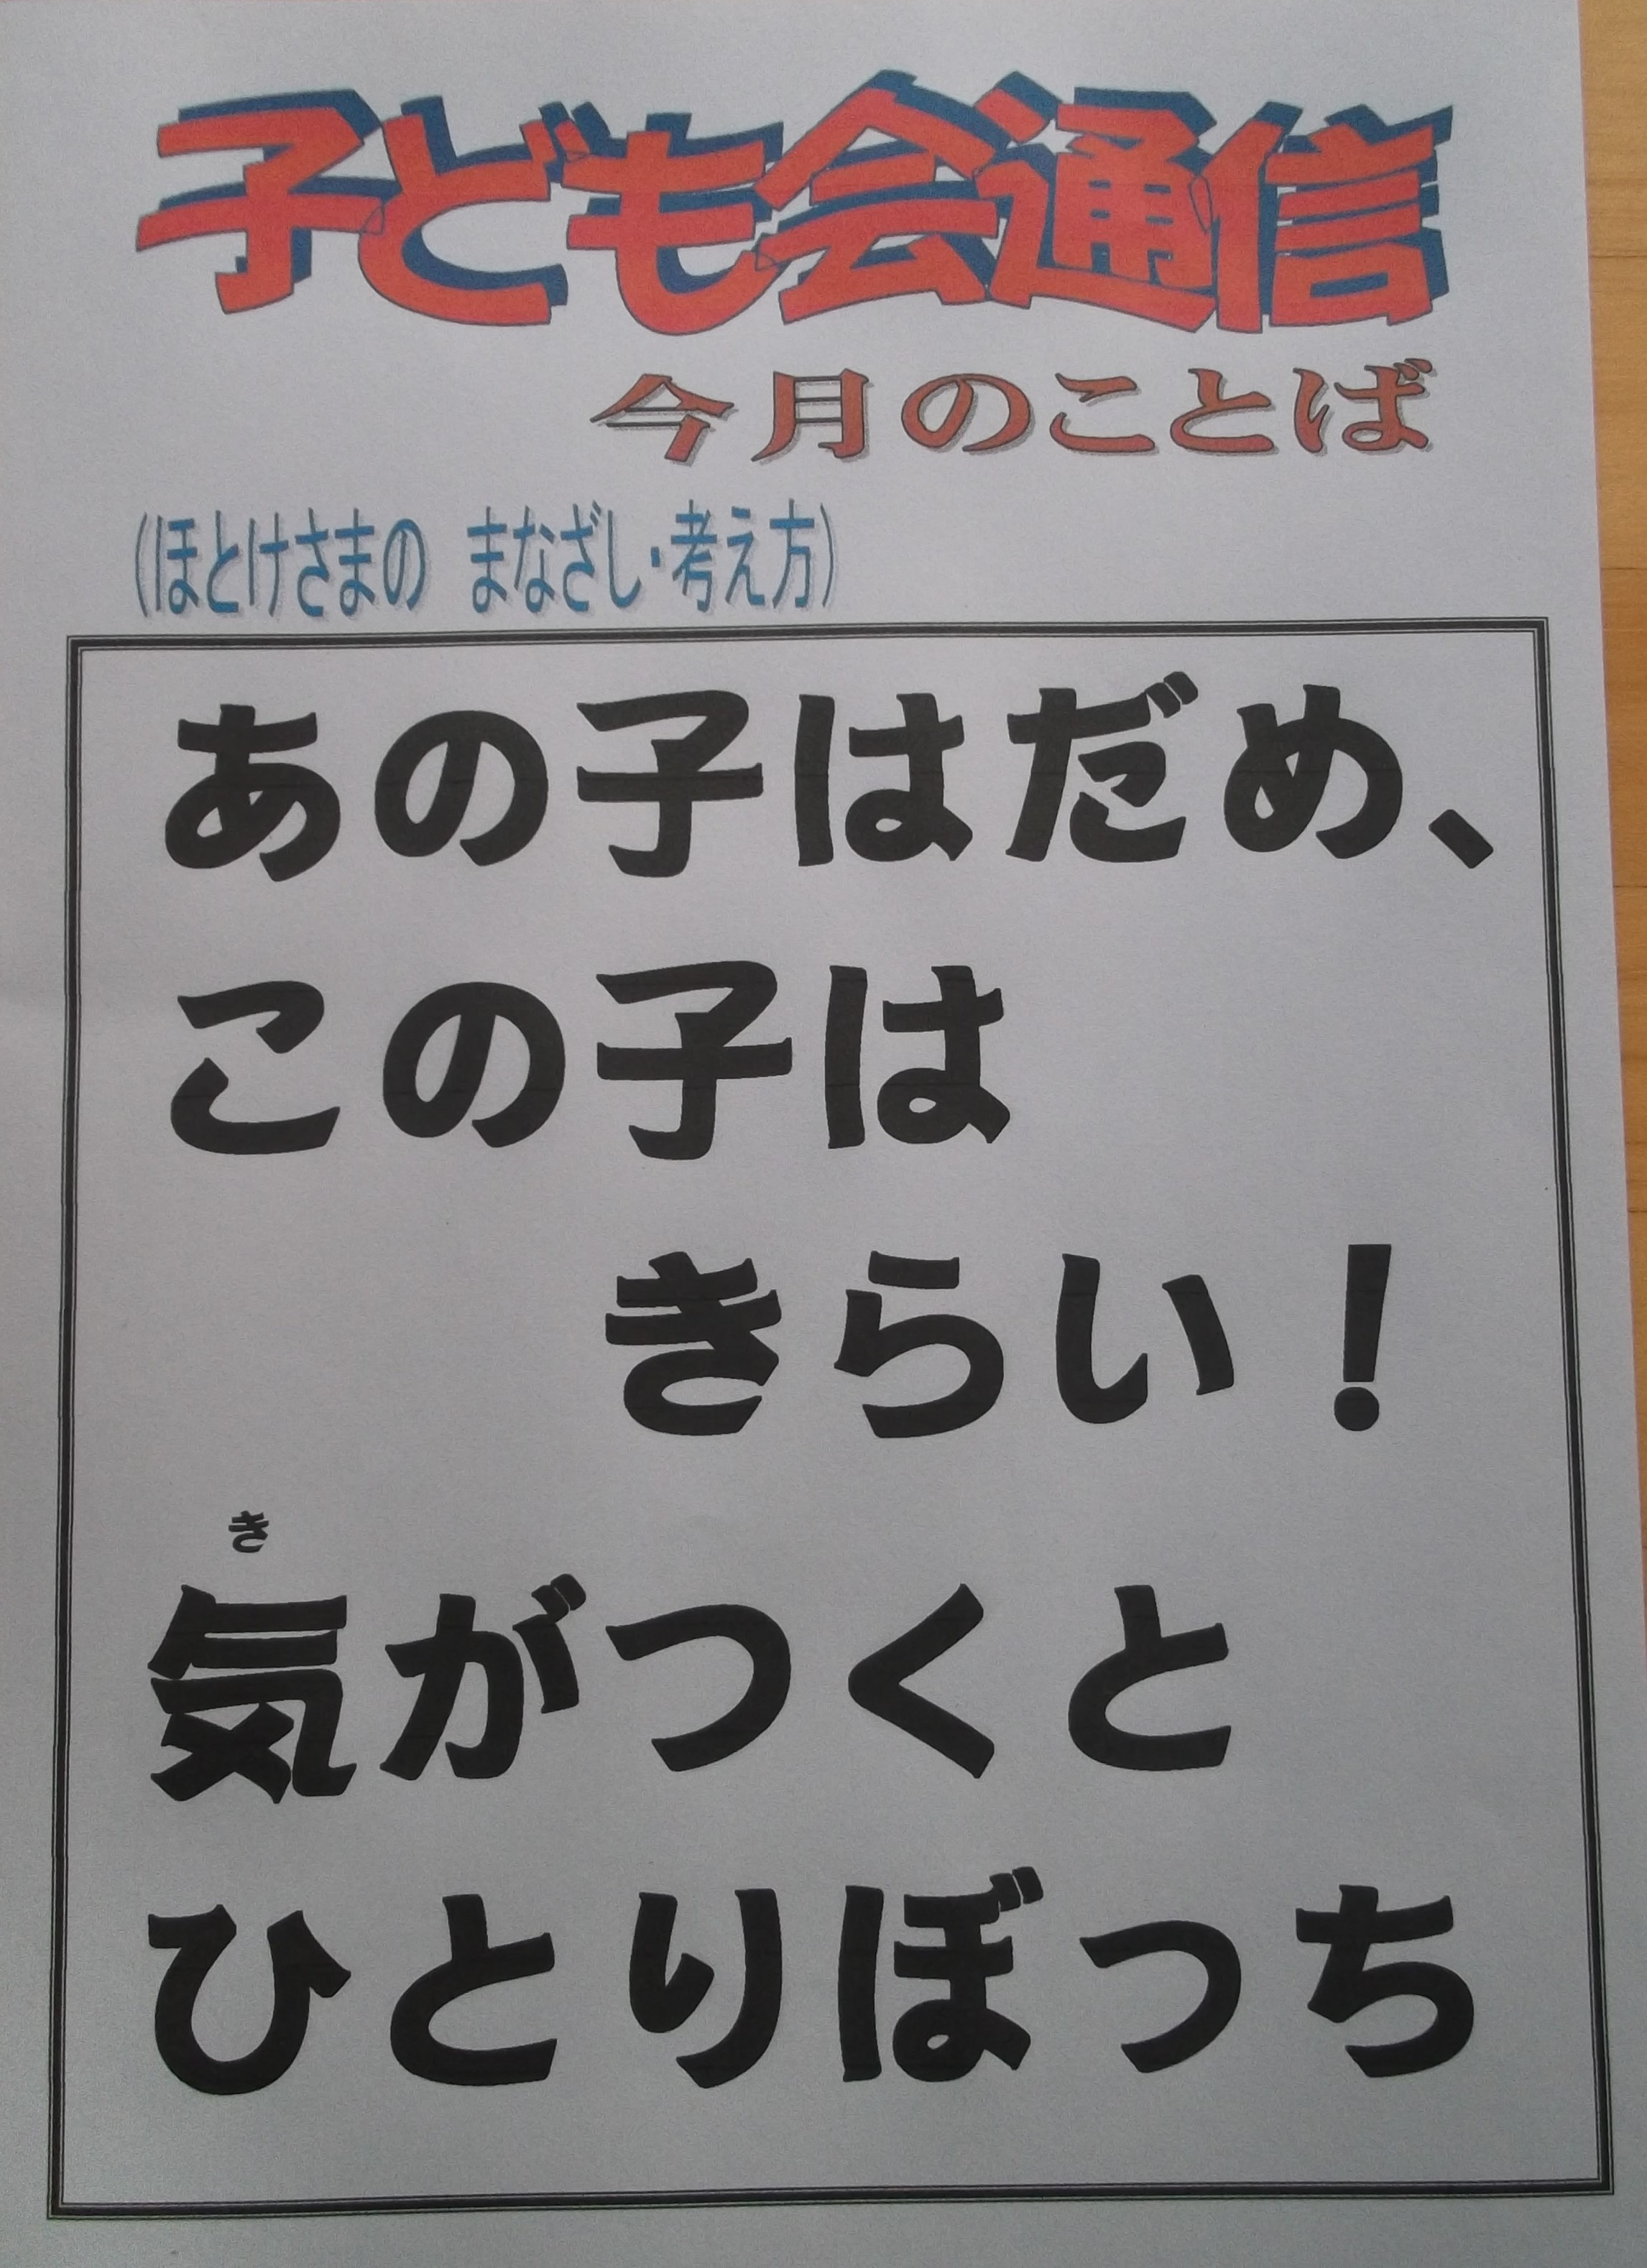 子ども会通信
今月のことば
(ほとけさまの　まなざし・考え方)
あの子はだめ、
この子は
きらい！
き
気がつくと
ひとりぼっち